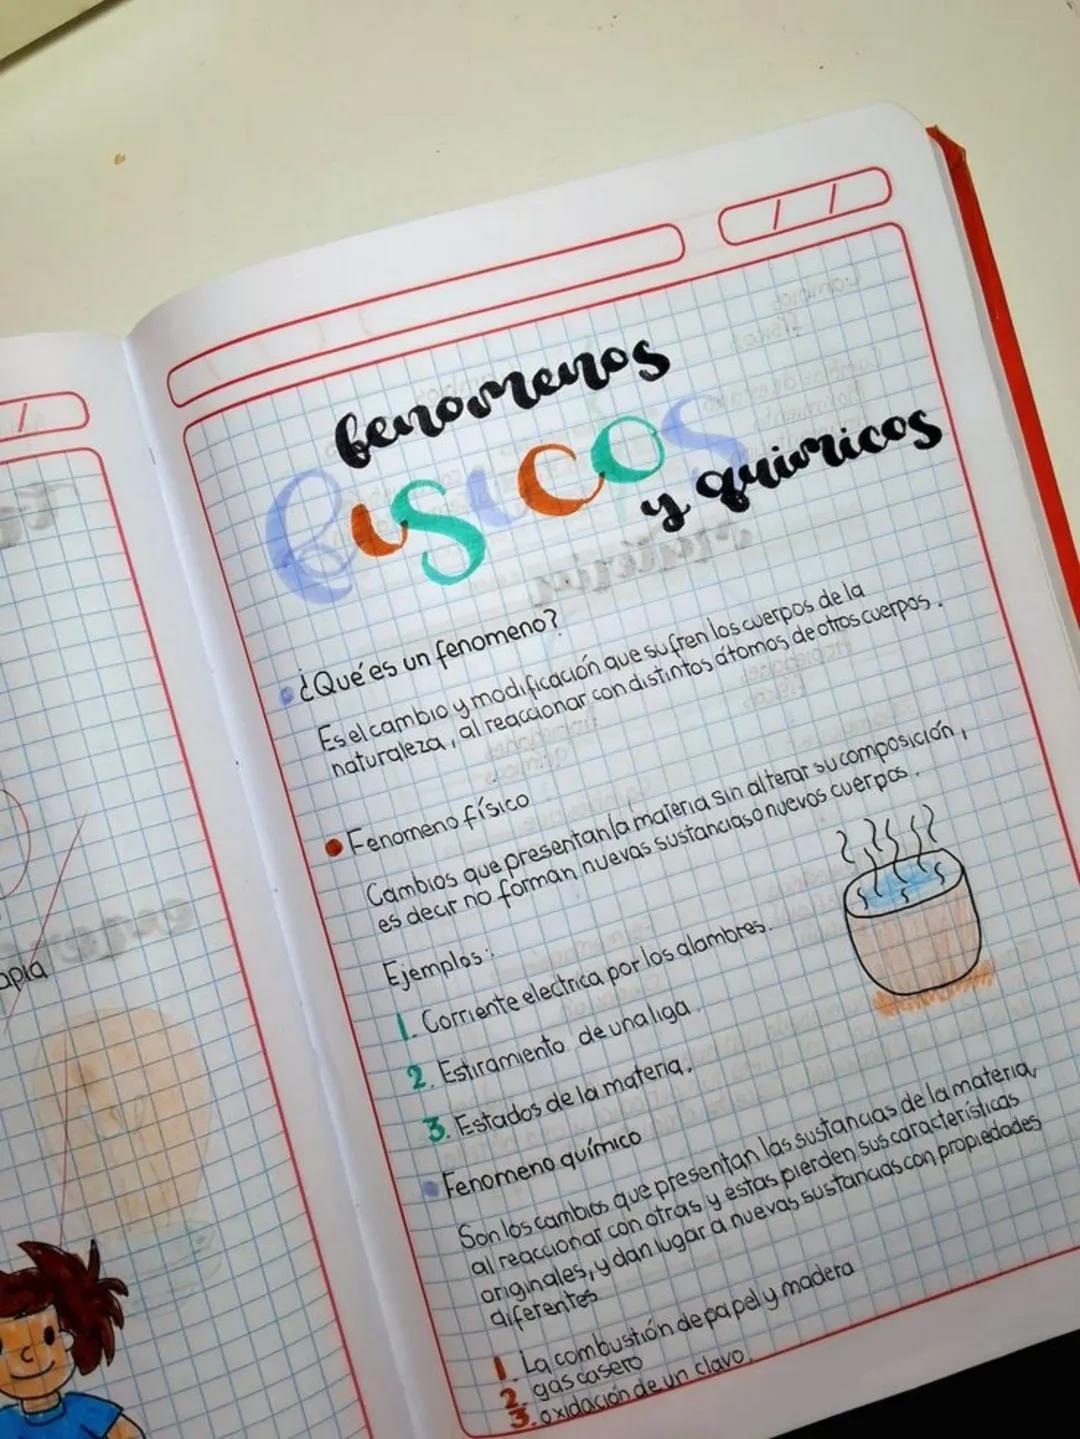 fenomenos
fisicos
y quimicos
¿Qué es un fenomeno?
Es el cambio y modificación que sufren los cuerpos de la
naturaleza, al reaccionar con distintos átomos de otros cuerpos.
Fenomeno físico
Cambios que presentan la materia sin alterar su composición,
es decir no forman nuevas sustancias o nuevos cuerpos.
Ejemplos:
1. Corriente electrica por los alambres.
2. Estiramiento de una liga.
3. Estados de la materia.
Fenomeno químico
Son los cambios que presentan las sustancias de la materia,
al reaccionar con otras y estas pierden sus características
originales, y dan lugar a nuevas sustancias con propiedades
diferentes
1. La combustión de papel y madera
2. gas casero
3. oxidación de un clavo.
apia